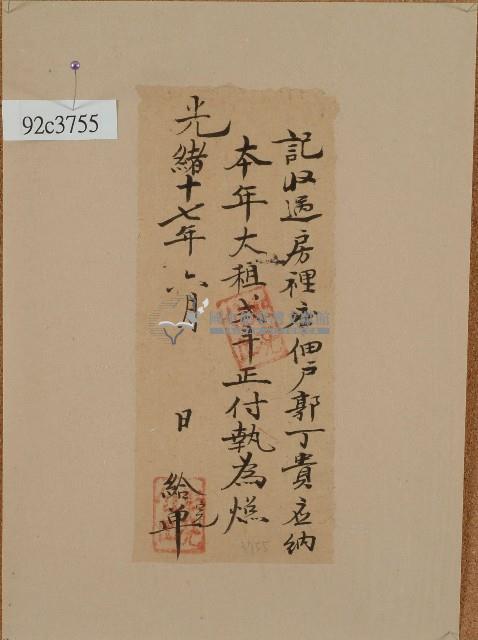 記收過房裡庄佃戶郭丁貴应納
本年大租弍斗正付執為炤
光緒十七年六月 日 給单
92c3755
3755